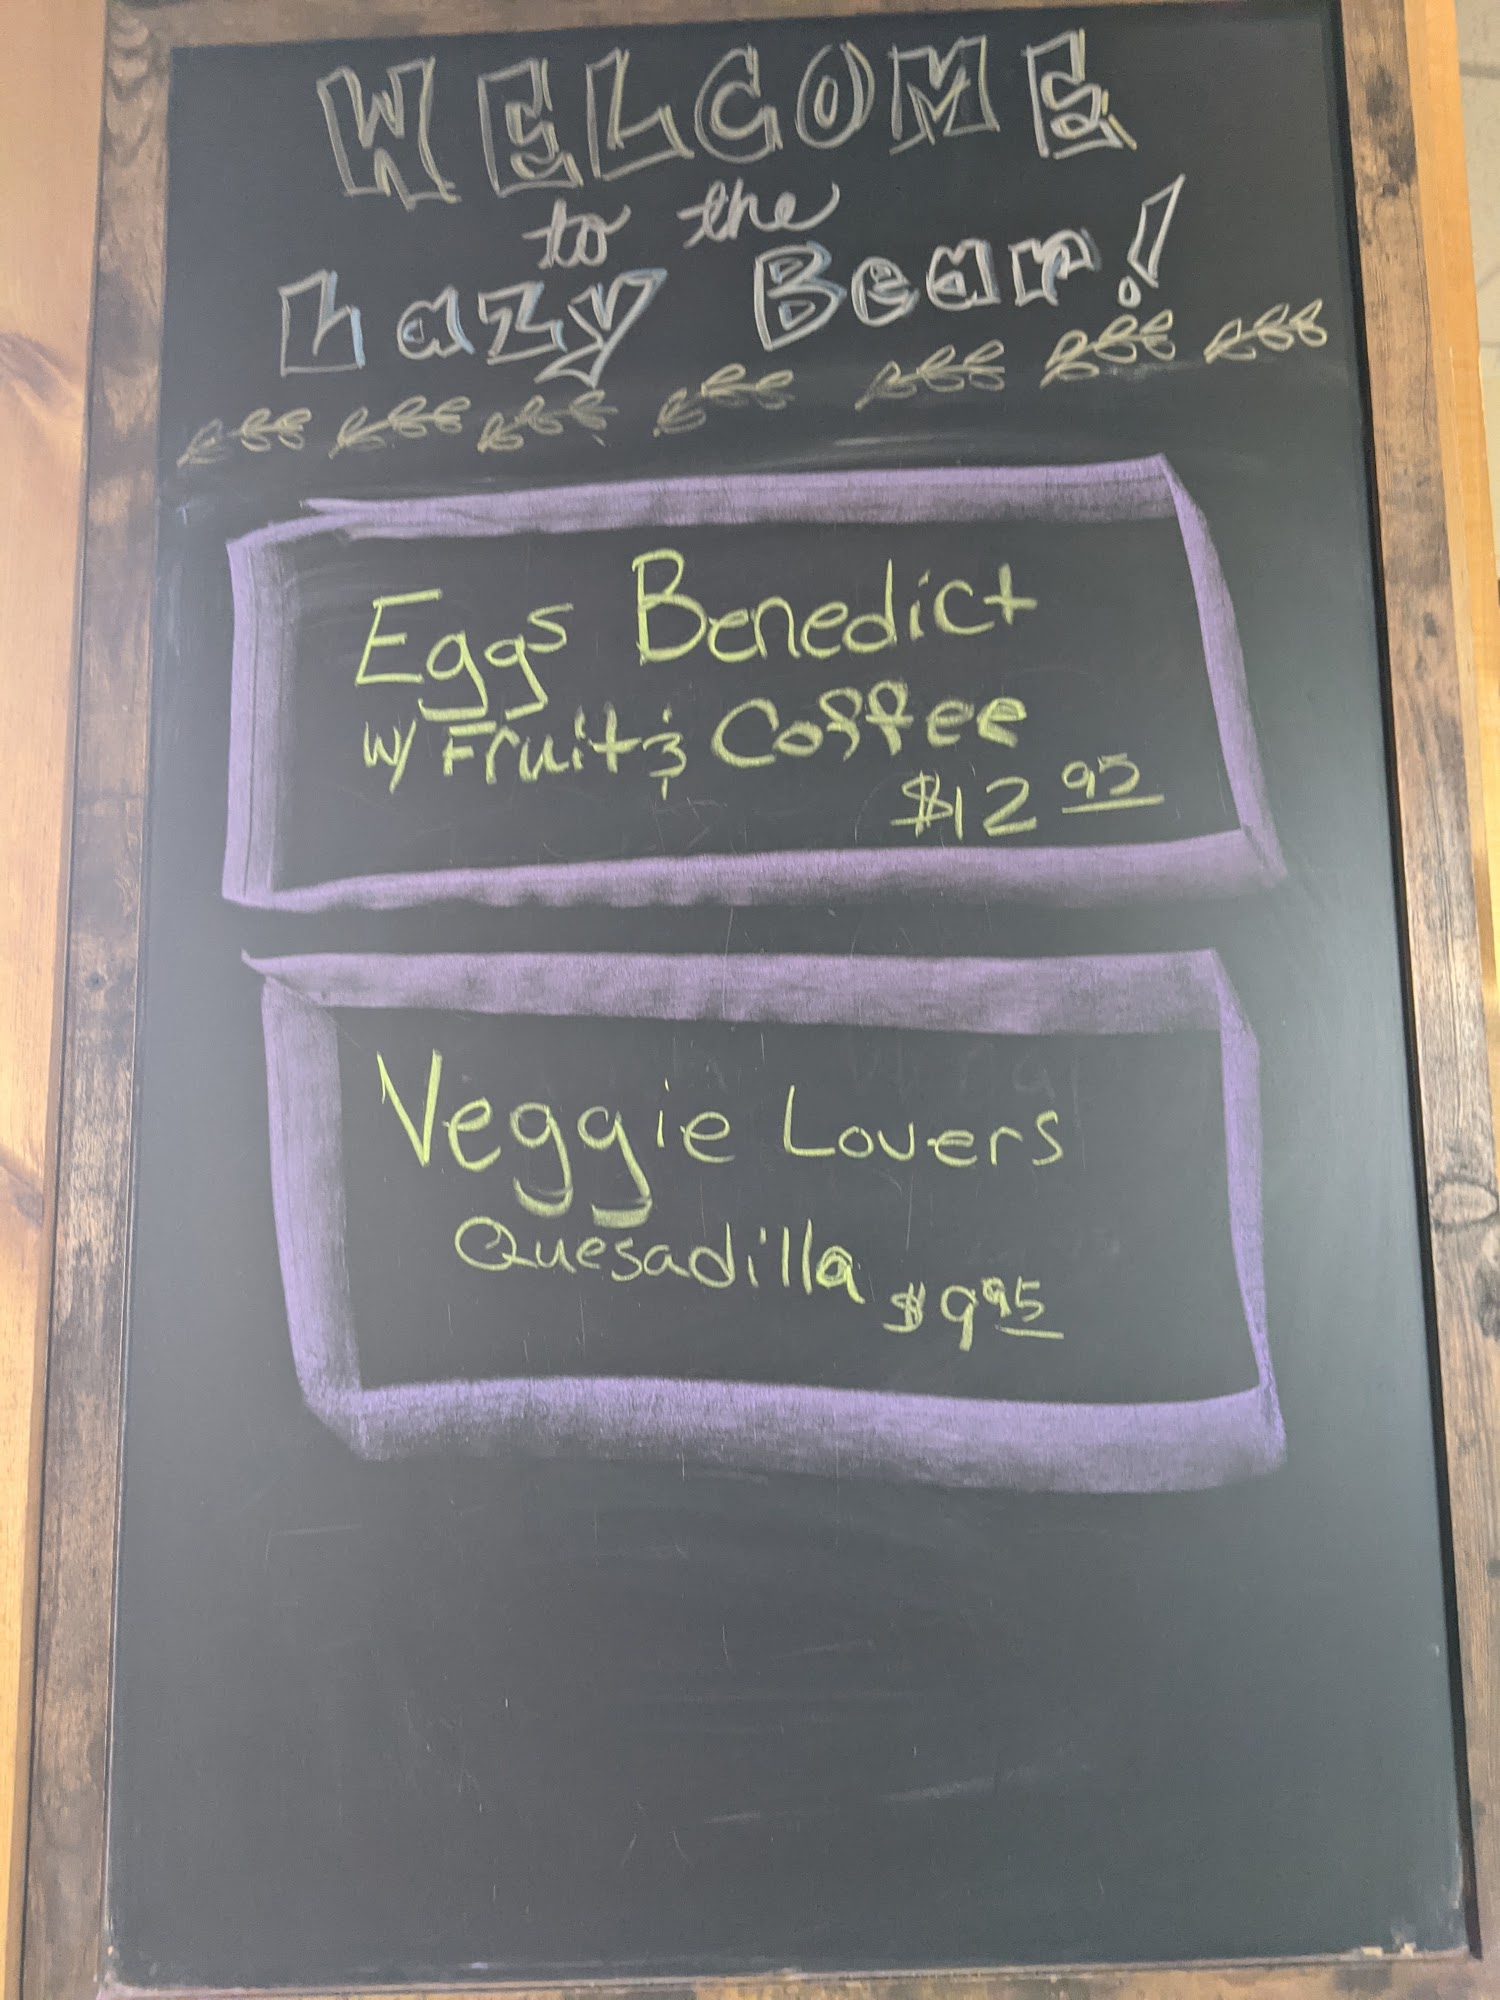 WELCOME
to the
Lazy Bear!
Eggs Benedict
w/ Fruit & Coffee
$12 95
Veggie Lovers
Quesadilla $9 95